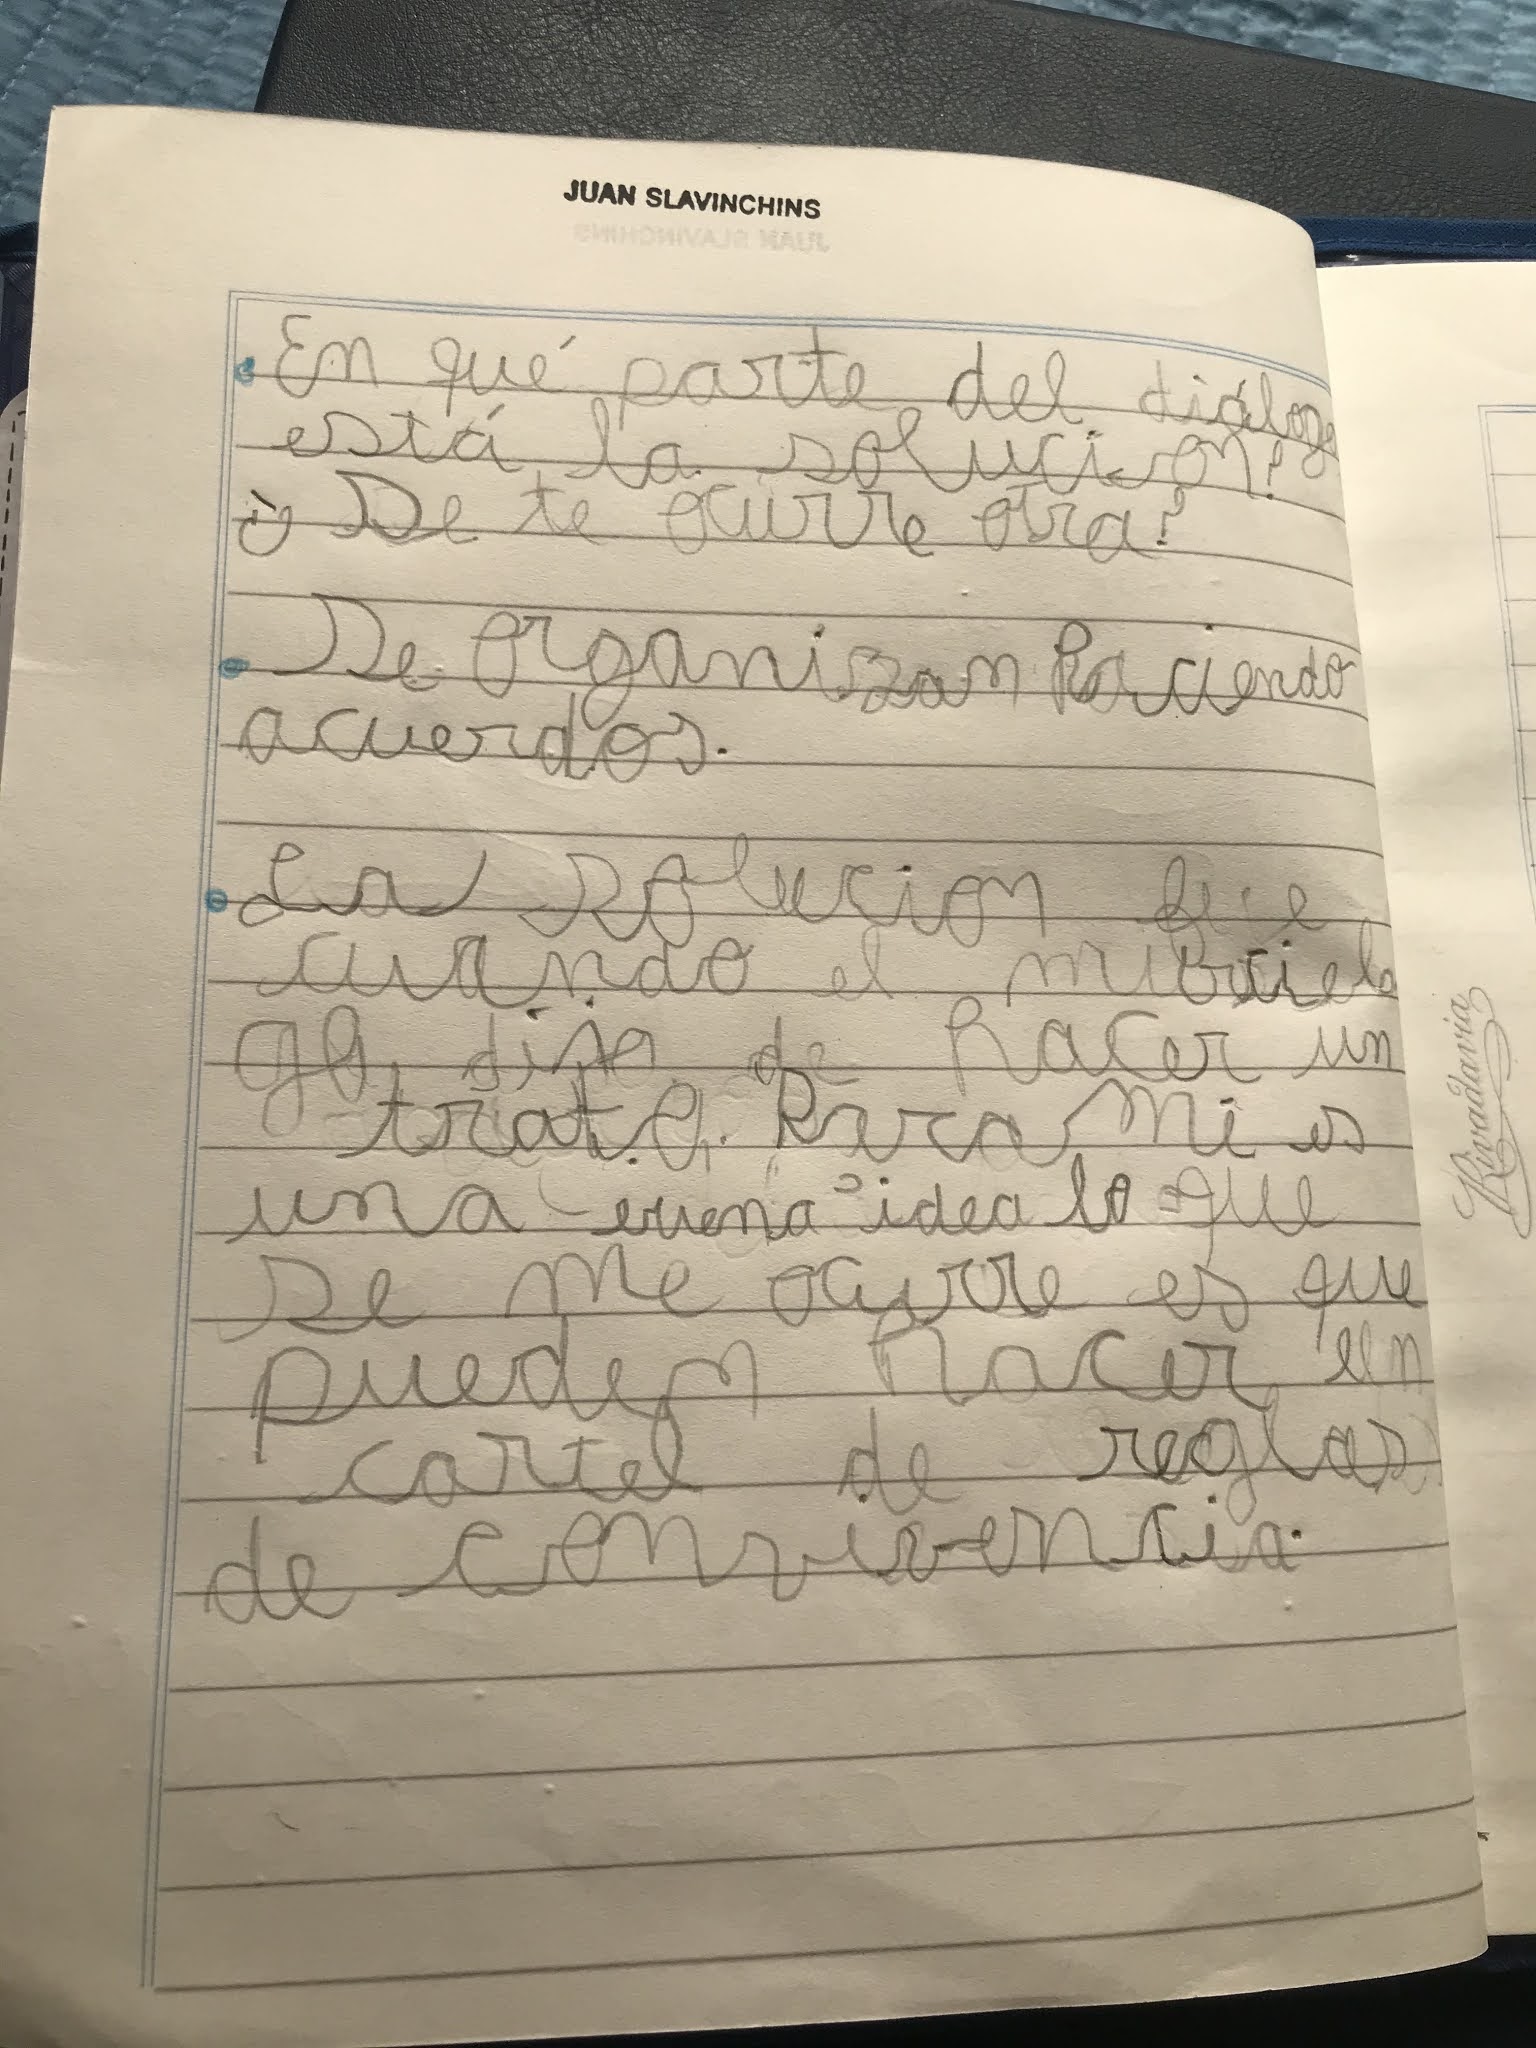 JUAN SLAVINCHINS
En qué parte del diálogo
está la solución?
¿ Se te ocurre otra?
Se organizan haciendo
acuerdos.
La solucion fue
cuando el murciela
go dijo de hacer un
trato. Para Mi es
una buena idea lo que
se me ocurre es que
pueden hacer un
cartel de reglas
de convivencia.
Rivadavia